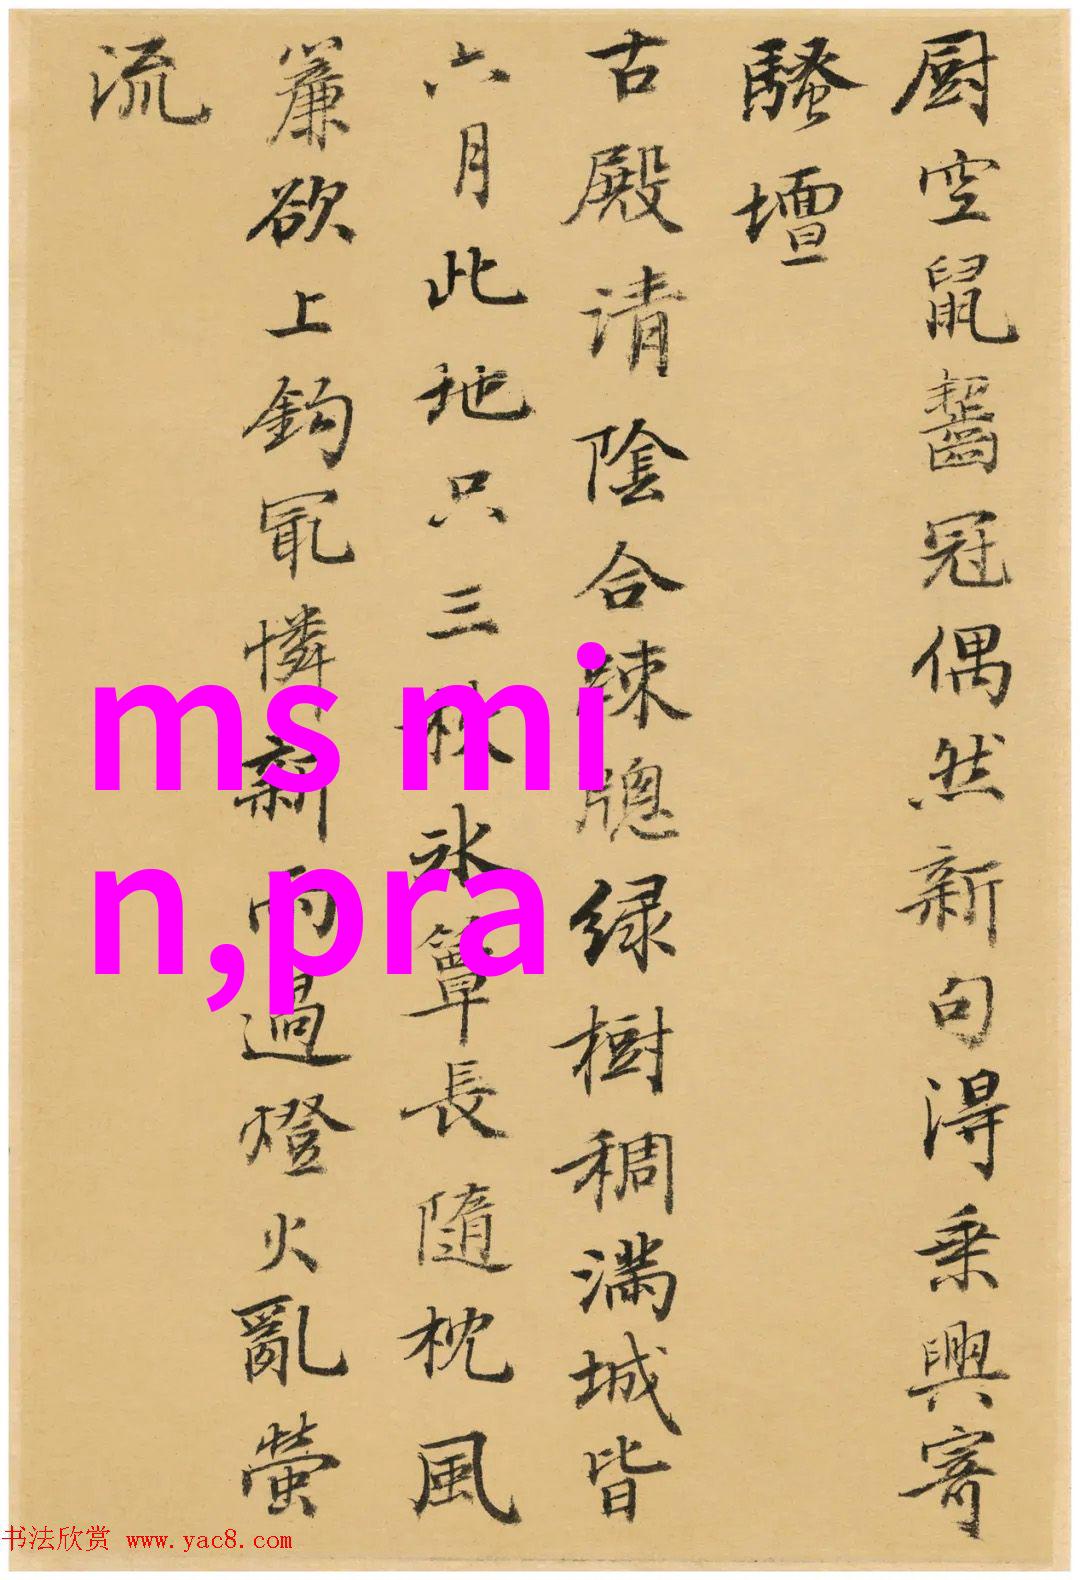 厨空鼠齧冠偶然新句得乗興寄
騷壇
古殿请陰合疎牕绿樹稠滿城皆
六月此地只三秋冰簟長隨枕風
簾欲上鈎冣憐新雨過燈火亂螢
流
ms mi
n,pra
书法欣赏 www.yac8.com